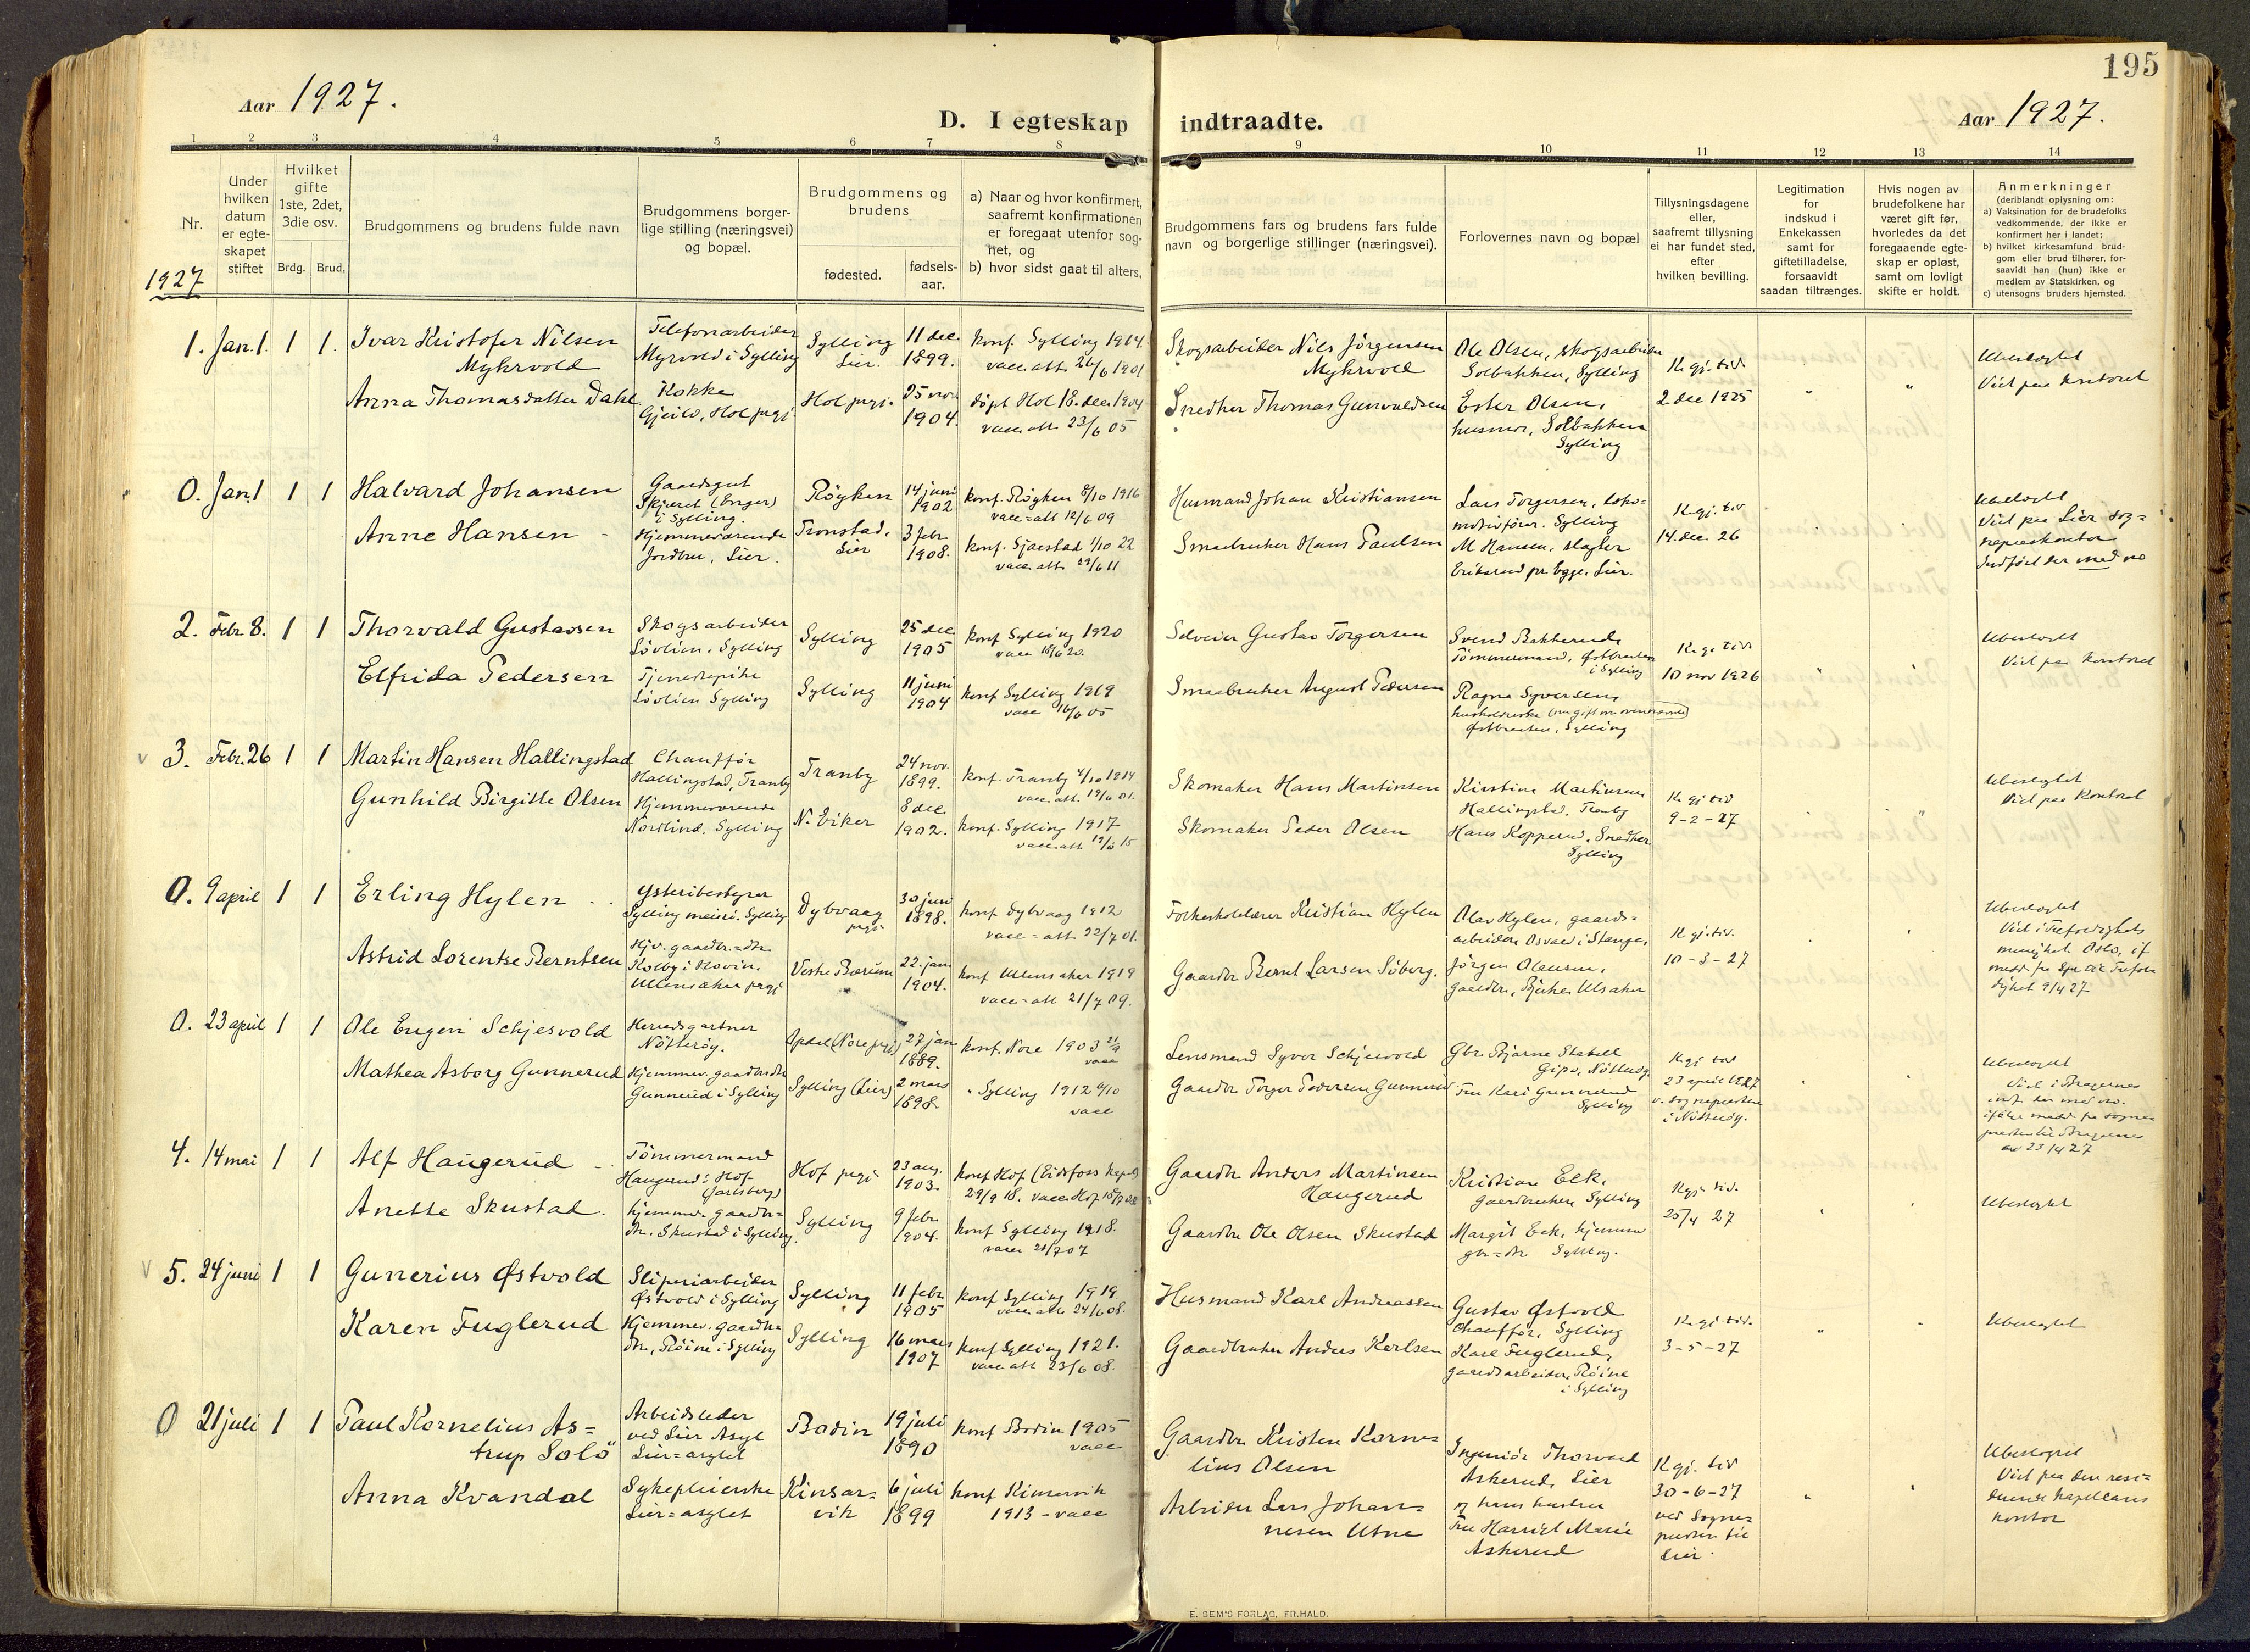 195
Aar 1927.
D. I egteskap indtraadte.
Aar 1927.
1 2 3 4 5 6 7 8 9 10 11 12 13 14
Nr.
Under hvilken datum er egte-skapet stiftet
Hvilket gifte 1ste, 2det, 3die osv.
Brdg. Brud.
Brudgommens og brudens fulde navn
Brudgommens borger-lige stilling (næringsvei) og bopæl.
Brudgommens og brudens
fødested.
fødsels-aar.
a) Naar og hvor konfirmert, saafremt konfirmationen er foregaat utenfor sog-net, og
b) hvor sidst gaat til alters,
Brudgommens fars og brudens fars fulde navn og borgerlige stillinger (næringsvei).
Forlovernes navn og bopæl
Tillysningsdagene eller, saafremt tillysning ei har fundet sted, efter hvilken bevilling.
Legitimation for indskud i Enkekassen samt for giftetilladelse, forsaavidt saadan tiltrænges.
Hvis nogen av brudefolkene har været gift før, hvorledes da det foregaaende egte-skap er opløst, samt om lovligt skifte er holdt.
Anmerkninger
(deriblandt oplysning om:
a) Vaksination for de brudefolks vedkommende, der ikke er konfirmert her i landet;
b) hvilket kirkesamfund brud-gom eller brud tilhører, for-saavidt han (hun) ikke er medlem av Statskirken, og
c) utensogns bruders hjemsted.
1927
1. Jan. 1. 1 1.
Ivar Kristofer Nilsen
Myhrvold
Telefonarbeider
Myrvold i Sylling
Sylling
Lier.
11 dec.
1899.
konf. Sylling 1914.
vacc. att. 26/6 1901
Skogsarbeider Nils Jörgensen
Myhrvold
Ole Olsen, skogsarbeider
Solbakken, Sylling
Kgj. tid.
2 dec 1925
Ubeslegtet
Viet paa kontoret
Anna Thomasdatter Dahl
Kokke
Gjeilo, Hol prgj.
Hol prgj.
25 nov.
1904.
döpt Hol 18. dec. 1904
vacc. att. 23/6 05
Snedker Thomas Gunvaldsen
Ester Olsen,
husmor, Solbakken
Sylling
0. Jan. 1 1 1
Halvard Johansen
Gaardsgut
Skjæret (Enger)
i Sylling.
Röyken
14 juni
1902
konf. Röyken 8/10 1916
vacc=att 12/6 09
Husmand Johan Kristiansen
Lars Torgersen, loko=
motivförer. Sylling
Kgj. tid
14. dec. 26
Ubeslegtet
Viet paa Lier sog=
nepreskontor
Indført der med no
Anne Hansen
Hjemmeværende
Jordbru, Lier.
Tronstad,
Lier
3 febr
1908.
konf. Sjaastad 1/10 22
vacc. att.
Smaabruker Hans Paulsen
M Hansen, slagter
Eriksrud pr. Egge. Lier.
2. Febr. 8. 1 1
Thorvald Gustavsen
Skogsarbeider
Lövlien, Sylling
Sylling
25 dec
1905
konf Sylling 1920
vacc
Selveier Gustav Torgersen
Svend Bakkerud,
Tömmermand, Østbraaten
i Sylling
Kgj. tid
10 nov 1926
Ubeslegtet
Viet paa kontoret
Elfrida Pedersen
Tjenestepike
Lövlien Sylling
Sylling
11 juni
1904
konf Sylling 1919
vacc 16/6 05
Smaabruker August Pedersen
Ragna Syversen,
Østbraaten, Sylling
v 3. Febr. 26 1 1
Martin Hansen Hallingstad
Chauffør
Hallingstad, Tranby
Tranby
24 nov.
1899.
konf. Tranby 4/10 1914
vacc. att. 19/6 01.
Skomaker Hans Martinsen
Kirstine Martinsen,
Hallingstad, Tranby
Kgj. tid
9-2-27
Ubeslegtet
Viet paa kontoret
Gunhild Birgitte Olsen
Hjemmeværende
Nordlind. Sylling
N. Eiker
8 dec.
1902.
konf. Sylling 1917
vacc. att.
Skomaker Peder Olsen
Hans Kopperud, Snedker
Sylling
0. 9 april 1 1
Erling Hylen
Ysteribestyrer
Sylling meieri. Sylling
Dybvaag
prgj
30 juni
1898.
konf Dybvaag 1912
vacc=att 22/7 01.
Forhenholderer Kristian Hylen
Olav Hylen, gaards=
arbeider Osvold i Stange,
Kgj. tid.
10-3-27
Ubeslegtet
Viet i Trefoldigheds
menighet. Oslo, if
Astrid Lorentse Berntsen
Hjv. gaardbr.=dtr
Kolby i Hovin.
Ullensaker prgj
Vestre Bærum
22. jan.
1904.
konf Ullensaker 1919
vacc=att 21/7 09.
Gaardbr Bernt Larsen Söberg.
Jörgen Olaussen,
gaardbr., Bjerke Ulsaker
0. 23 april 1 1
Ole Eugen Schjesvold
Herredsgartner
Nötterøy.
Opdal (Nore prgj)
27 jan
1889.
konf. Nore 1903
vacc
Lensmand Syver Schjesvold
Gbr. Bjarne Stabell
Gipö, Nötterøy.
Kgj tid
23 april 1927
v. sognepresten
i Nötterøy.
Ubeslegtet
Viet i Bragernes
Mathea Asborg Gunnerud
Hjemmev. gaardbr.dtr
Gunnerud i Sylling
Sylling (Lier)
2 mars
1898.
" Sylling 1912 6/10
vacc
Gaardbr Torger Pedersen Gunnerud
Fru Kari Gunnerud
Sylling
4. 14 mai 1 1
Alf Haugerud
Tömmermand
Haugerud i Hof
(Jarlsberg)
Hof prgj
23 aug.
1903.
konf Hof (Eidsfoss kapel)
29/9 18.
Gaardbr Anders Martinsen
Haugerud
Kristian Eek,
gaardbruker Sylling
Kgj. tid.
25/4 27
Ubeslegtet
Anette Skustad.
hjemmev. gaardbr=
dtr. Skustad i Sylling.
Sylling
9 febr.
1904.
konf Sylling 1918.
vacc 21/7 07
Gaardbr Ole Olsen Skustad
Margit Eek, hjemmev
gbr=dtr Sylling.
v 5. 24 juni 1 1
Gunerius Østvold
Sliperiarbeider
Østvold i Sylling
Sylling
11 febr.
1905
konf Sylling 1919
vacc. att 24/6 08.
Husmand Karl Andreassen
Gustav Østvold
Chauffør, Sylling
Kgj. tid.
3-5-27
Ubeslegtet
Karen Fuglerud
Hjemmev. gaardbr=
dtr, Röine i Sylling
Sylling
16 mars
1907
konf Sylling 1921.
vacc. att 23/6 08.
Gaardbruker Anders Karlsen
Karl Fuglerud,
gaardsarbeider, Röine
i Sylling
0 21 juli 1 1
Paul Kornelius As=
trup Solö
Arbeidsleder
ved Lier Asyl
Lier=asylet
Bodin
19 juli
1890
konf Bodin 1905
vacc
Gaardbr Kristen Korne=
lius Olsen
Ingeniör Thorvald
Askerud, Lier
og hans hustru
Fru Harriet Marie
Askerud
Kgj. tid
30-6-27
ved Sogne=
presten til
Lier.
Ubeslegtet
Viet paa den resi=
derende kapellans
kontor
Anna Kvandal
Sykepleierske
Lier=asylet
Kinsar=
vik
6 juli
1899
konf Kinsarvik
1913 - vacc
Arbeider Lars Johan=
nesen Utne
E. SEM'S FORLAG, FR.HALD.